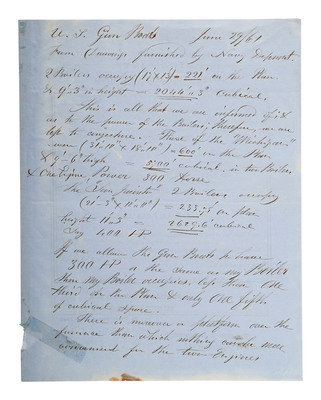 U. S. Gun Boats June 29/61
From Drawings furnished by Navy Department
2 Boilers occupy (17 x 13) = 221' on the Plan
& 9'.3" in height = 2044'.3" cubical.
This is all that we are informed of; &
as to the power of the Boilers, therefore, we are
left to conjecture. Those of the "Michigan"
were (31'.10" x 18'.10") = 600' on the Plan
& 9'-6" high = 5700' cubical, in two Boilers
& One Engine, Power 300 horse
The 2 Boilers occupy
(21'.3" x 11'.0") = 233.75' on plan
height 11'.3" = 2629.6' cubical
Say 400 HP
If we allow the Gun Boats to have
300 HP or the same as my Boiler
then my Boiler occupies, less than One
third on the Plan & only One fifth
of cubical space.
There is moreover a platform over the
furnace than which nothing can be more
convenient for the two Engineers